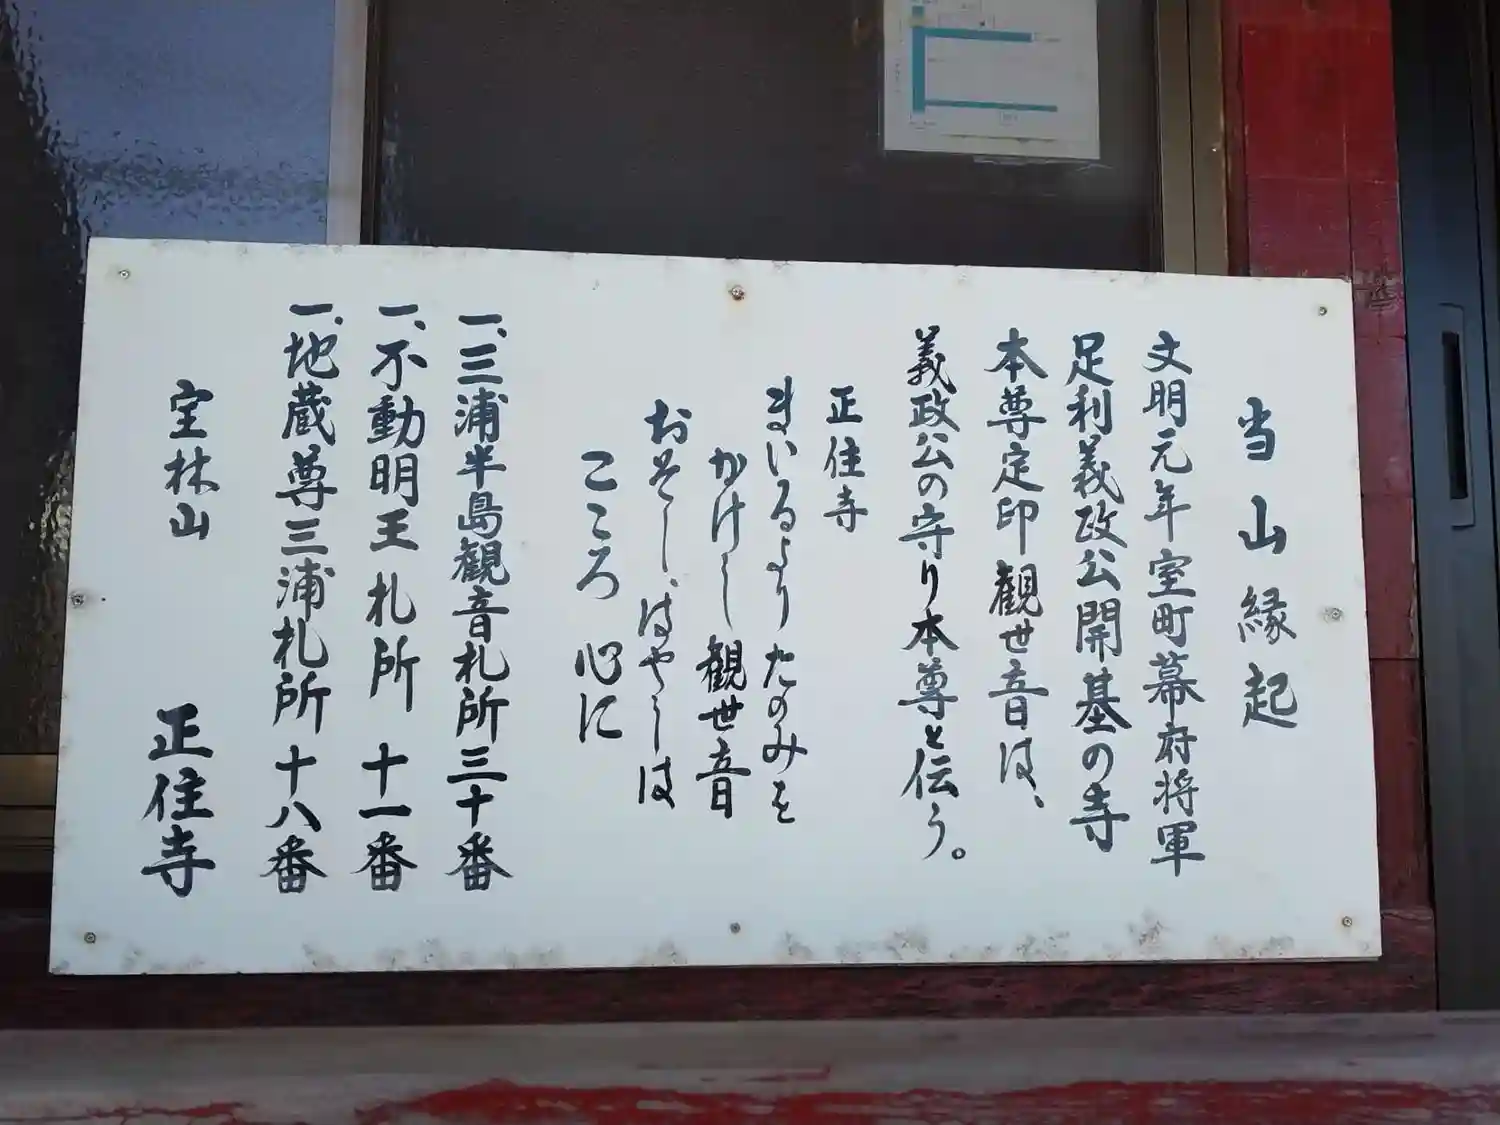 当山縁起
文明元年室町幕府将軍
足利義政公開基の寺
本尊定印観世音は、
義政公の守り本尊と伝う。
正住寺
まいるより たのみを
かけし 観世音
おそし、はやしは
こころ 心に
一、三浦半島観音札所三十番
一、不動明王札所 十一番
一、地蔵尊三浦札所 十八番
宝林山 正住寺